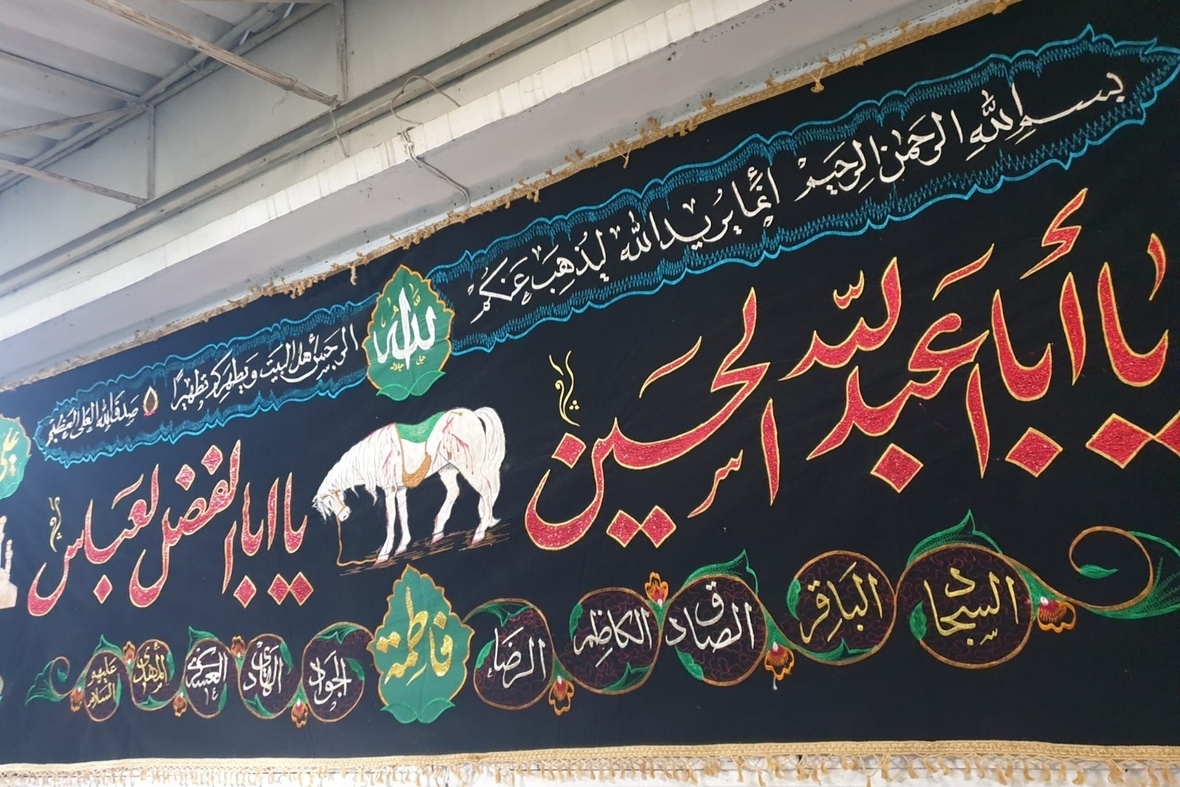 بسم الله الرحمن الرحیم انما یرید الله لیذهب عنکم
الله
جل جلاله
الرجس أهل البیت و یطهرکم تطهیرًا
صدق الله العلی العظیم
یا أبا عبدالله الحسین
یا ابا الفضل العباس
السجاد
الباقر
الصادق
الکاظم
الرضا
فاطمة
الجواد
الهادی
العسکری
المهدی
علیهم السلام